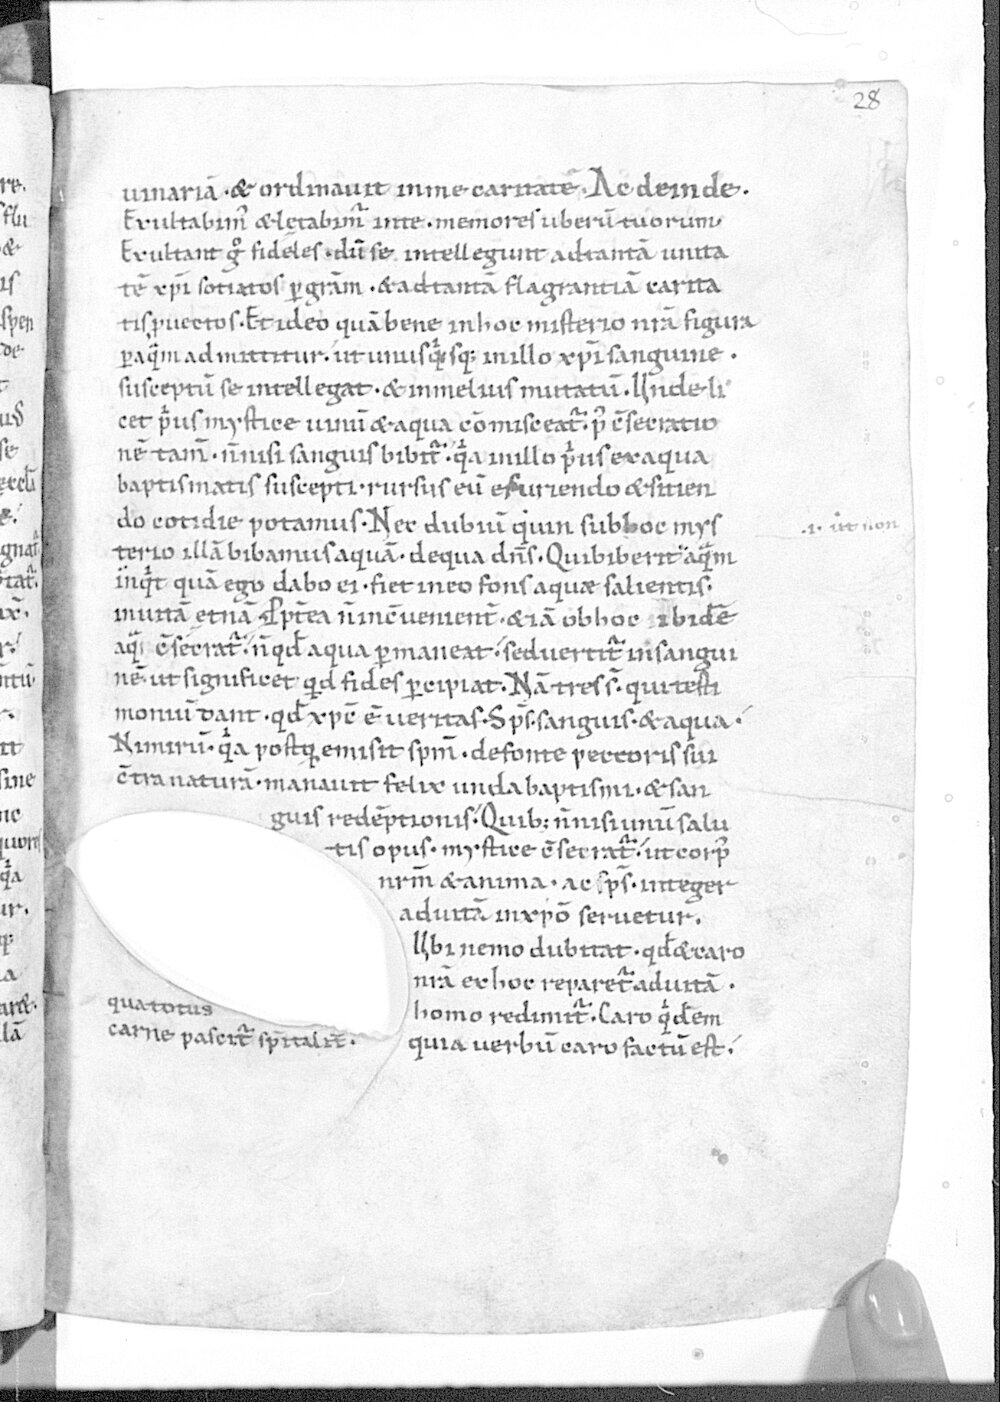 28
uinariā · & ordinauit inme caritatē · Ac deinde ·
Exultabim᷒ & lętabim᷒ inte · memores uberū tuorum
Exultant gͦ fideles · dū se intellegunt adtantā unita
tē xp̄i sotiatos p̱ grām · & adtantā flagrantiā carita
tis puectos · Et ideo quā bene inhoc misterio nrā figura
p̱ aq̄m admittitur · ut unusq̇sq; inillo xp̄i sanguine ·
susceptū se intellegat · & inmelius mutatū · Unde li
cet p̍us mystice uinū & aqua cōmisceat᷑ · p᷒ c̄secratio
nē tam̄ · n̄nisi sanguis bibit᷑ · q̍a inillo p̍us exaqua
baptismatis suscepti · rursus eū esuriendo & sitien
do cotidie potamus · Nec dubiū quin subhoc mys
.i. ut non
terio illā bibamus aquā · dequa dn̄s · Quibiberit aq̄m
inq̍t quā ego dabo ei · fiet ineo fons aquæ salientis ·
inuitā etnā · Ppt̄ea n̄ inc̄uenient᷑ · & iā obhoc ibidē
aq̄ c̄secrat᷑ · n̄ qd̄ aqua p̱maneat · seduertit᷑ insangui
nē · ut significet qd fides p̱cipiat · Nā tres s̄ · qui testi
moniū dant · qd̄ xp̄c ē ueritas · Sp̄s · sanguis · & aqua ·
Nimirū · q̍a postq̄ emisit sp̄m · defonte pectoris sui
c̄tra naturā · manauit felix unda baptismi · & san
guis redēptionis · Quib; n̄nisi unū salu
tis opus · mystice c̄secrat᷑ · ut corp᷒
nrm̄ & anima · ac sp̄s · integer
aduitā inxp̄o seruetur ·
Ubi nemo dubitat · qd̄ & caro
nrā exhoc reparet᷑ aduitā ·
qua totus homo redimit᷑ · Caro q̍dem
carne pascit᷑ sp̄italit̄ · quia uerbū caro factū est ·